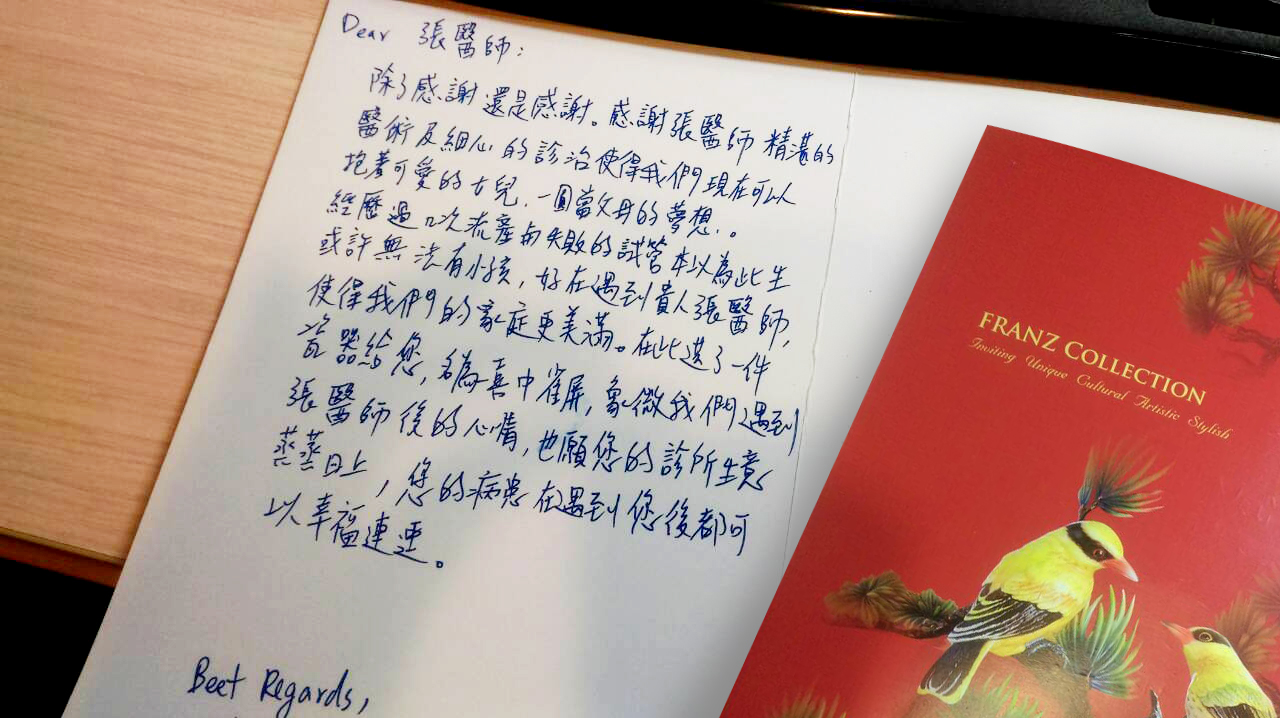 Dear 張醫師:
除了感謝還是感謝。感謝張醫師精湛的
醫術及細心的診治使得我們現在可以
抱著可愛的女兒,一圓當父母的夢想。
經歷過几次流產與失敗的試管本以為此生
或許無法有小孩,好在遇到貴人張醫師,
使得我們的家庭更美滿。在此選了一件
瓷器給您,名為喜中雀屏,象徵我們遇到
張醫師後的心情,也願您的診所生意
蒸蒸日上,您的病患在遇到您後都可
以幸福連連。
Best Regards,
FRANZ COLLECTION
Inviting Unique Cultural Artistic Stylish